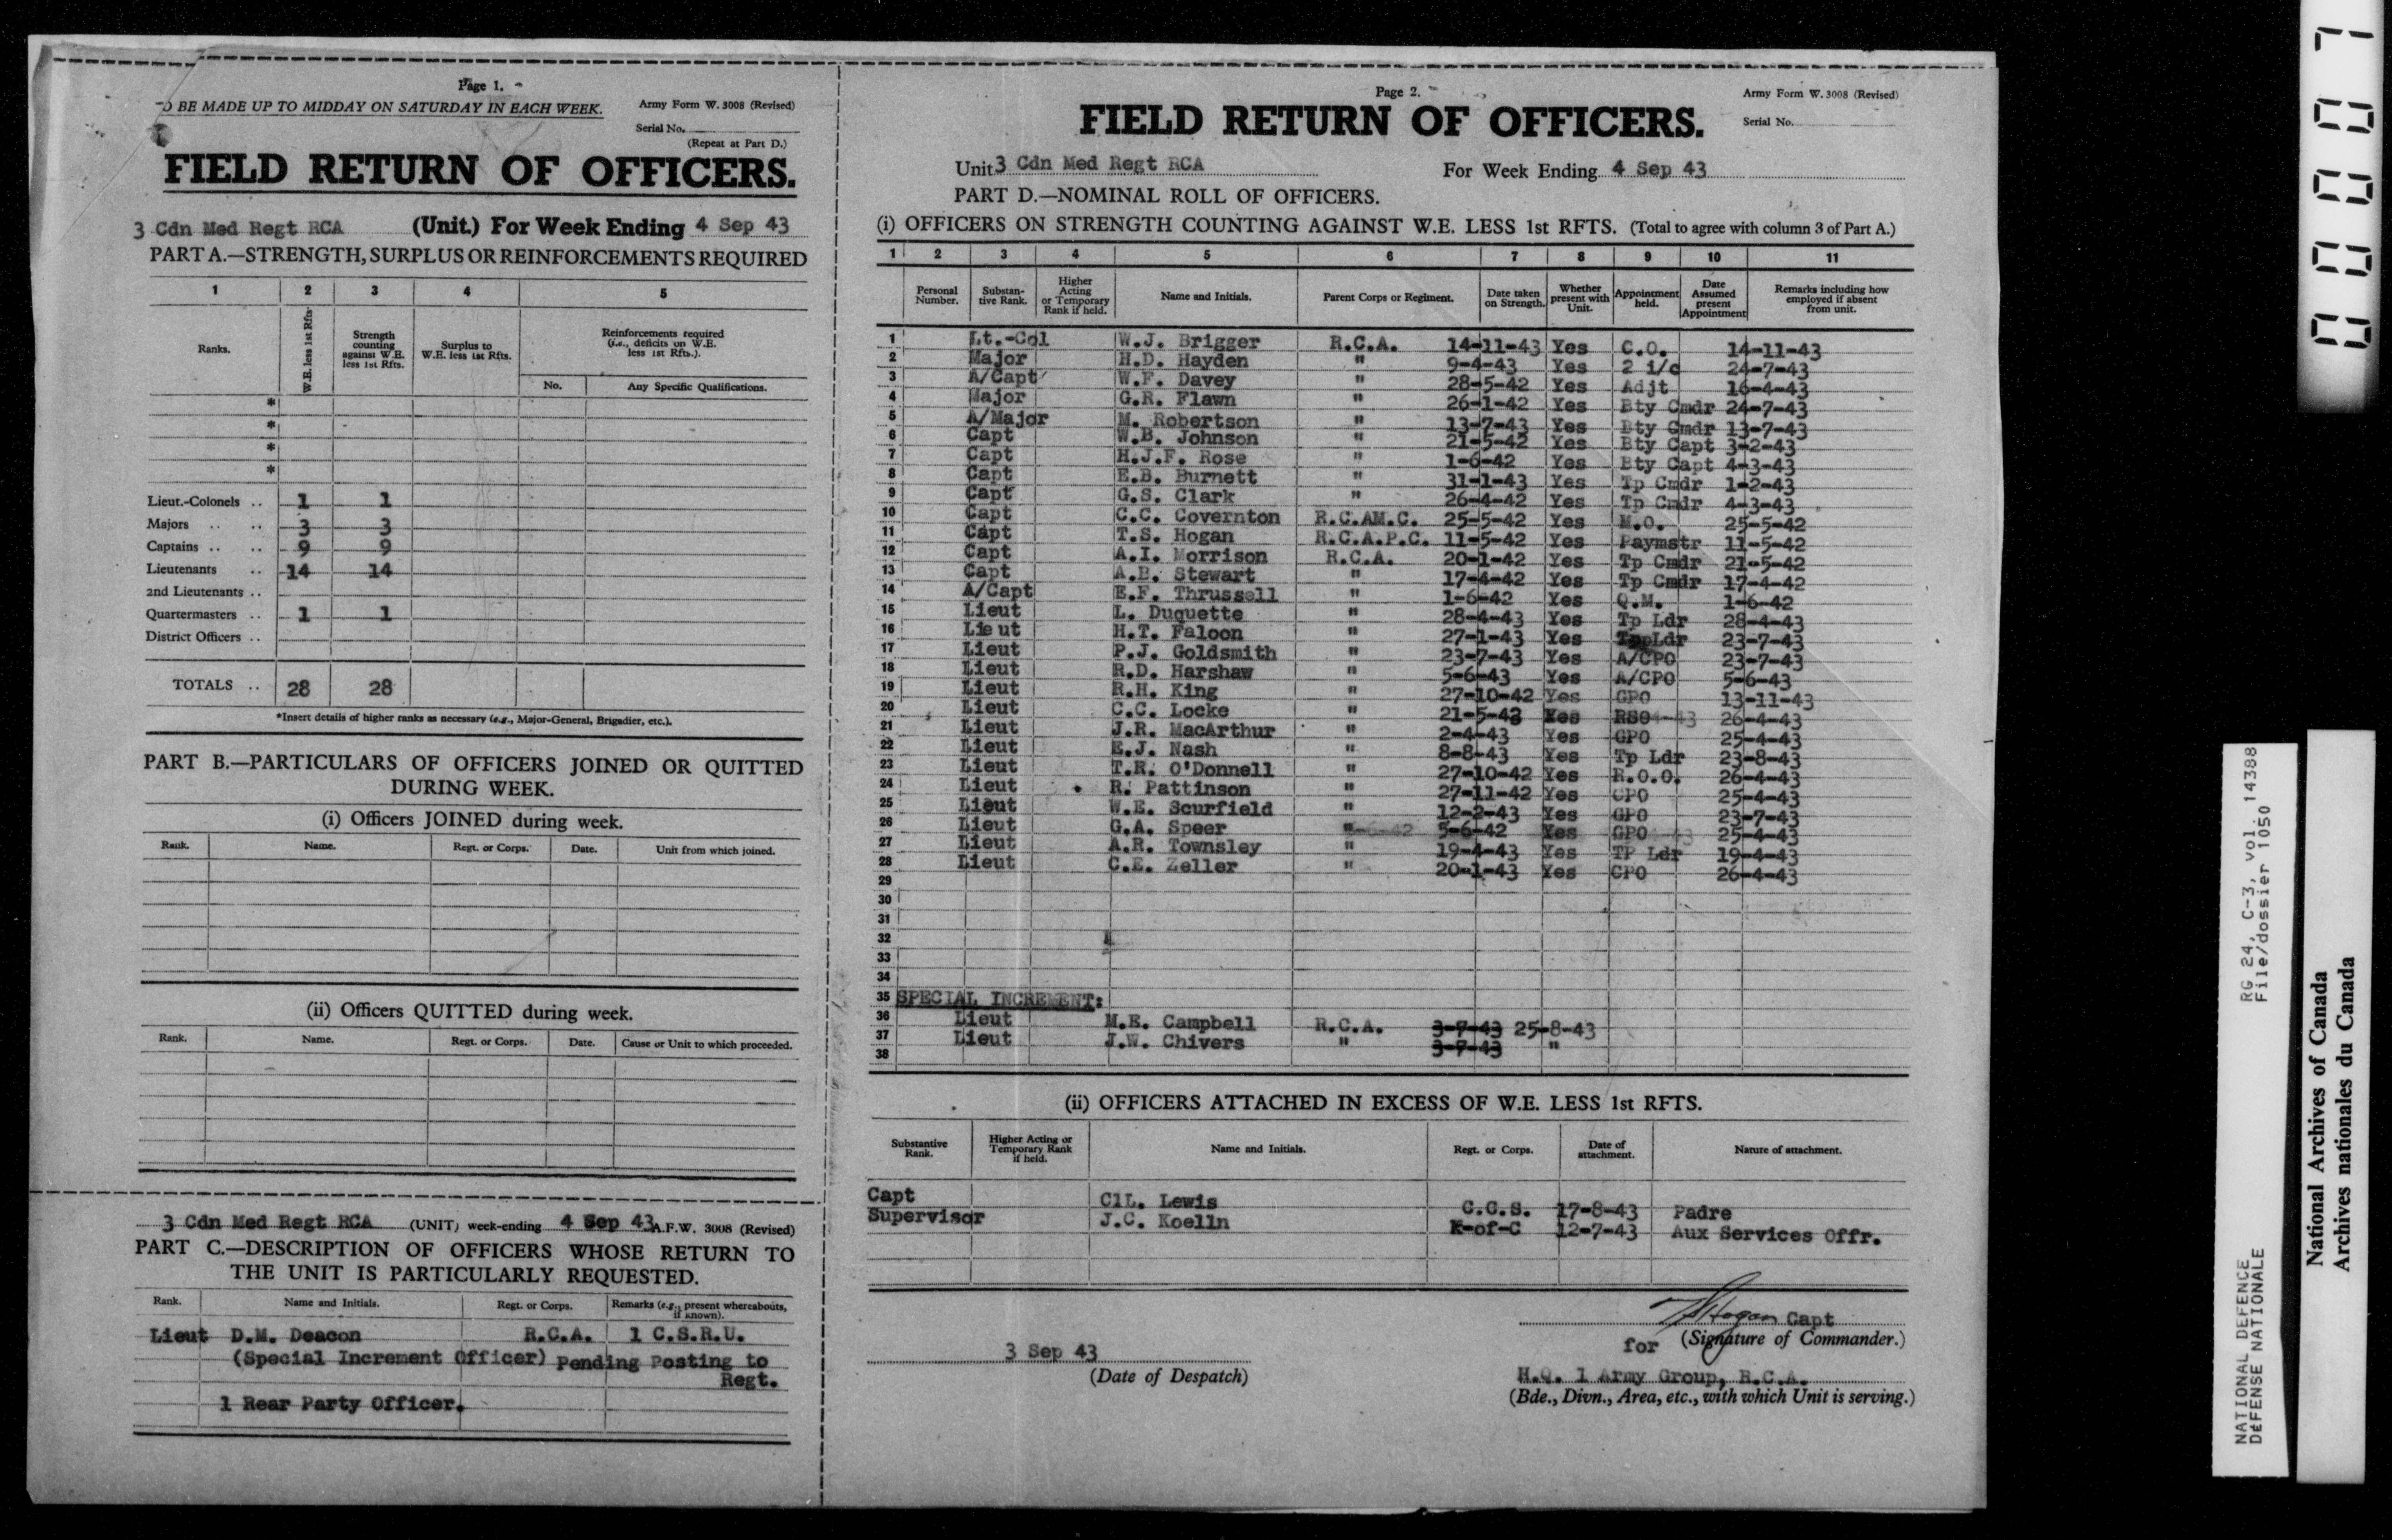 Page 1.
O BE MADE UP TO MIDDAY ON SATURDAY IN EACH WEEK.
Army Form W. 3008 (Revised)
Serial No.
(Repeat at Part D.)
FIELD RETURN OF OFFICERS.
3 Cdn Med Regt RCA (Unit.) For Week Ending 4 Sep 43
PART A.—STRENGTH, SURPLUS OR REINFORCEMENTS REQUIRED
1 2 3 4 5
Ranks.
W.E. less 1st Rfts.
Strength counting against W.E. less 1st Rfts.
Surplus to W.E. less 1st Rfts.
Reinforcements required (i.e., deficits on W.E. less 1st Rfts.).
No. Any Specific Qualifications.
*
*
*
*
Lieut.-Colonels .. 1 1
Majors .. .. 3 3
Captains .. .. 9 9
Lieutenants .. 14 14
2nd Lieutenants ..
Quartermasters .. 1 1
District Officers ..
TOTALS .. 28 28
*Insert details of higher ranks as necessary (e.g., Major-General, Brigadier, etc.).
PART B.—PARTICULARS OF OFFICERS JOINED OR QUITTED
DURING WEEK.
(i) Officers JOINED during week.
Rank. Name. Regt. or Corps. Date. Unit from which joined.
(ii) Officers QUITTED during week.
Rank. Name. Regt. or Corps. Date. Cause or Unit to which proceeded.
3 Cdn Med Regt RCA (UNIT) week-ending 4 Sep 43 A.F.W. 3008 (Revised)
PART C.—DESCRIPTION OF OFFICERS WHOSE RETURN TO
THE UNIT IS PARTICULARLY REQUESTED.
Rank. Name and Initials. Regt. or Corps. Remarks (e.g., present whereabouts, if known).
Lieut D.M. Deacon R.C.A. 1 C.S.R.U.
(Special Increment Officer) Pending Posting to
Regt.
1 Rear Party Officer.
Page 2.
Army Form W. 3008 (Revised)
FIELD RETURN OF OFFICERS.
Serial No.
Unit 3 Cdn Med Regt RCA For Week Ending 4 Sep 43
PART D.—NOMINAL ROLL OF OFFICERS.
(i) OFFICERS ON STRENGTH COUNTING AGAINST W.E. LESS 1st RFTS. (Total to agree with column 3 of Part A.)
1 2 3 4 5 6 7 8 9 10 11
Personal Number. Substantive Rank. Higher Acting or Temporary Rank if held. Name and Initials. Parent Corps or Regiment. Date taken on Strength. Whether present with Unit. Appointment held. Date Assumed present Appointment Remarks including how employed if absent from unit.
1 Lt.-Col W.J. Brigger R.C.A. 14-11-43 Yes C.O. 14-11-43
2 Major H.D. Hayden " 9-4-43 Yes 2 i/c 24-7-43
3 A/Capt W.F. Davey " 28-5-42 Yes Adjt 16-4-43
4 Major G.R. Flawn " 26-1-42 Yes Bty Cmdr 24-7-43
5 A/Major M. Robertson " 13-7-43 Yes Bty Cmdr 13-7-43
6 Capt W.B. Johnson " 21-5-42 Yes Bty Capt 3-2-43
7 Capt H.J.F. Rose " 1-6-42 Yes Bty Capt 4-3-43
8 Capt E.B. Burnett " 31-1-43 Yes Tp Cmdr 1-2-43
9 Capt G.S. Clark " 26-4-42 Yes Tp Cmdr 4-3-43
10 Capt C.C. Covernton R.C.AM.C. 25-5-42 Yes M.O. 25-5-42
11 Capt T.S. Hogan R.C.A.P.C. 11-5-42 Yes Paymstr 11-5-42
12 Capt A.I. Morrison R.C.A. 20-1-42 Yes Tp Cmdr 21-5-42
13 Capt A.B. Stewart " 17-4-42 Yes Tp Cmdr 17-4-42
14 A/Capt E.F. Thrussell " 1-6-42 Yes Q.M. 1-6-42
15 Lieut L. Duquette " 28-4-43 Yes Tp Ldr 28-4-43
16 Lieut H.T. Faloon " 27-1-43 Yes Tp Ldr 23-7-43
17 Lieut P.J. Goldsmith " 23-7-43 Yes A/CPO 23-7-43
18 Lieut R.D. Harshaw " 5-6-43 Yes A/CPO 5-6-43
19 Lieut R.H. King " 27-10-42 Yes GPO 13-11-43
20 Lieut C.C. Locke " 21-5-43 Yes RSO 26-4-43
21 Lieut J.R. MacArthur " 2-4-43 Yes GPO 25-4-43
22 Lieut E.J. Nash " 8-8-43 Yes Tp Ldr 23-8-43
23 Lieut T.R. O'Donnell " 27-10-42 Yes R.O.O. 26-4-43
24 Lieut R. Pattinson " 27-11-42 Yes CPO 25-4-43
25 Lieut W.E. Scurfield " 12-2-43 Yes GPO 23-7-43
26 Lieut G.A. Speer " 5-6-42 Yes GPO 25-4-43
27 Lieut A.R. Townsley " 19-4-43 Yes TP Ldr 19-4-43
28 Lieut C.E. Zeller " 20-1-43 Yes CPO 26-4-43
29
30
31
32
33
34
35 SPECIAL INCREMENT:
36 Lieut M.E. Campbell R.C.A. 3-7-43 25-8-43
37 Lieut J.W. Chivers " 3-7-43 "
38
(ii) OFFICERS ATTACHED IN EXCESS OF W.E. LESS 1st RFTS.
Substantive Rank. Higher Acting or Temporary Rank if held. Name and Initials. Regt. or Corps. Date of attachment. Nature of attachment.
Capt ClL. Lewis C.C.S. 17-8-43 Padre
Supervisor J.C. Koelln K-of-C 12-7-43 Aux Services Offr.
TSHogan Capt
3 Sep 43 for (Signature of Commander.)
(Date of Despatch) H.Q. 1 Army Group, R.C.A.
(Bde., Divn., Area, etc., with which Unit is serving.)
00007
NATIONAL DEFENCE RG 24, C-3, vol. 14388
DÉFENSE NATIONALE File/dossier 1050
National Archives of Canada
Archives nationales du Canada